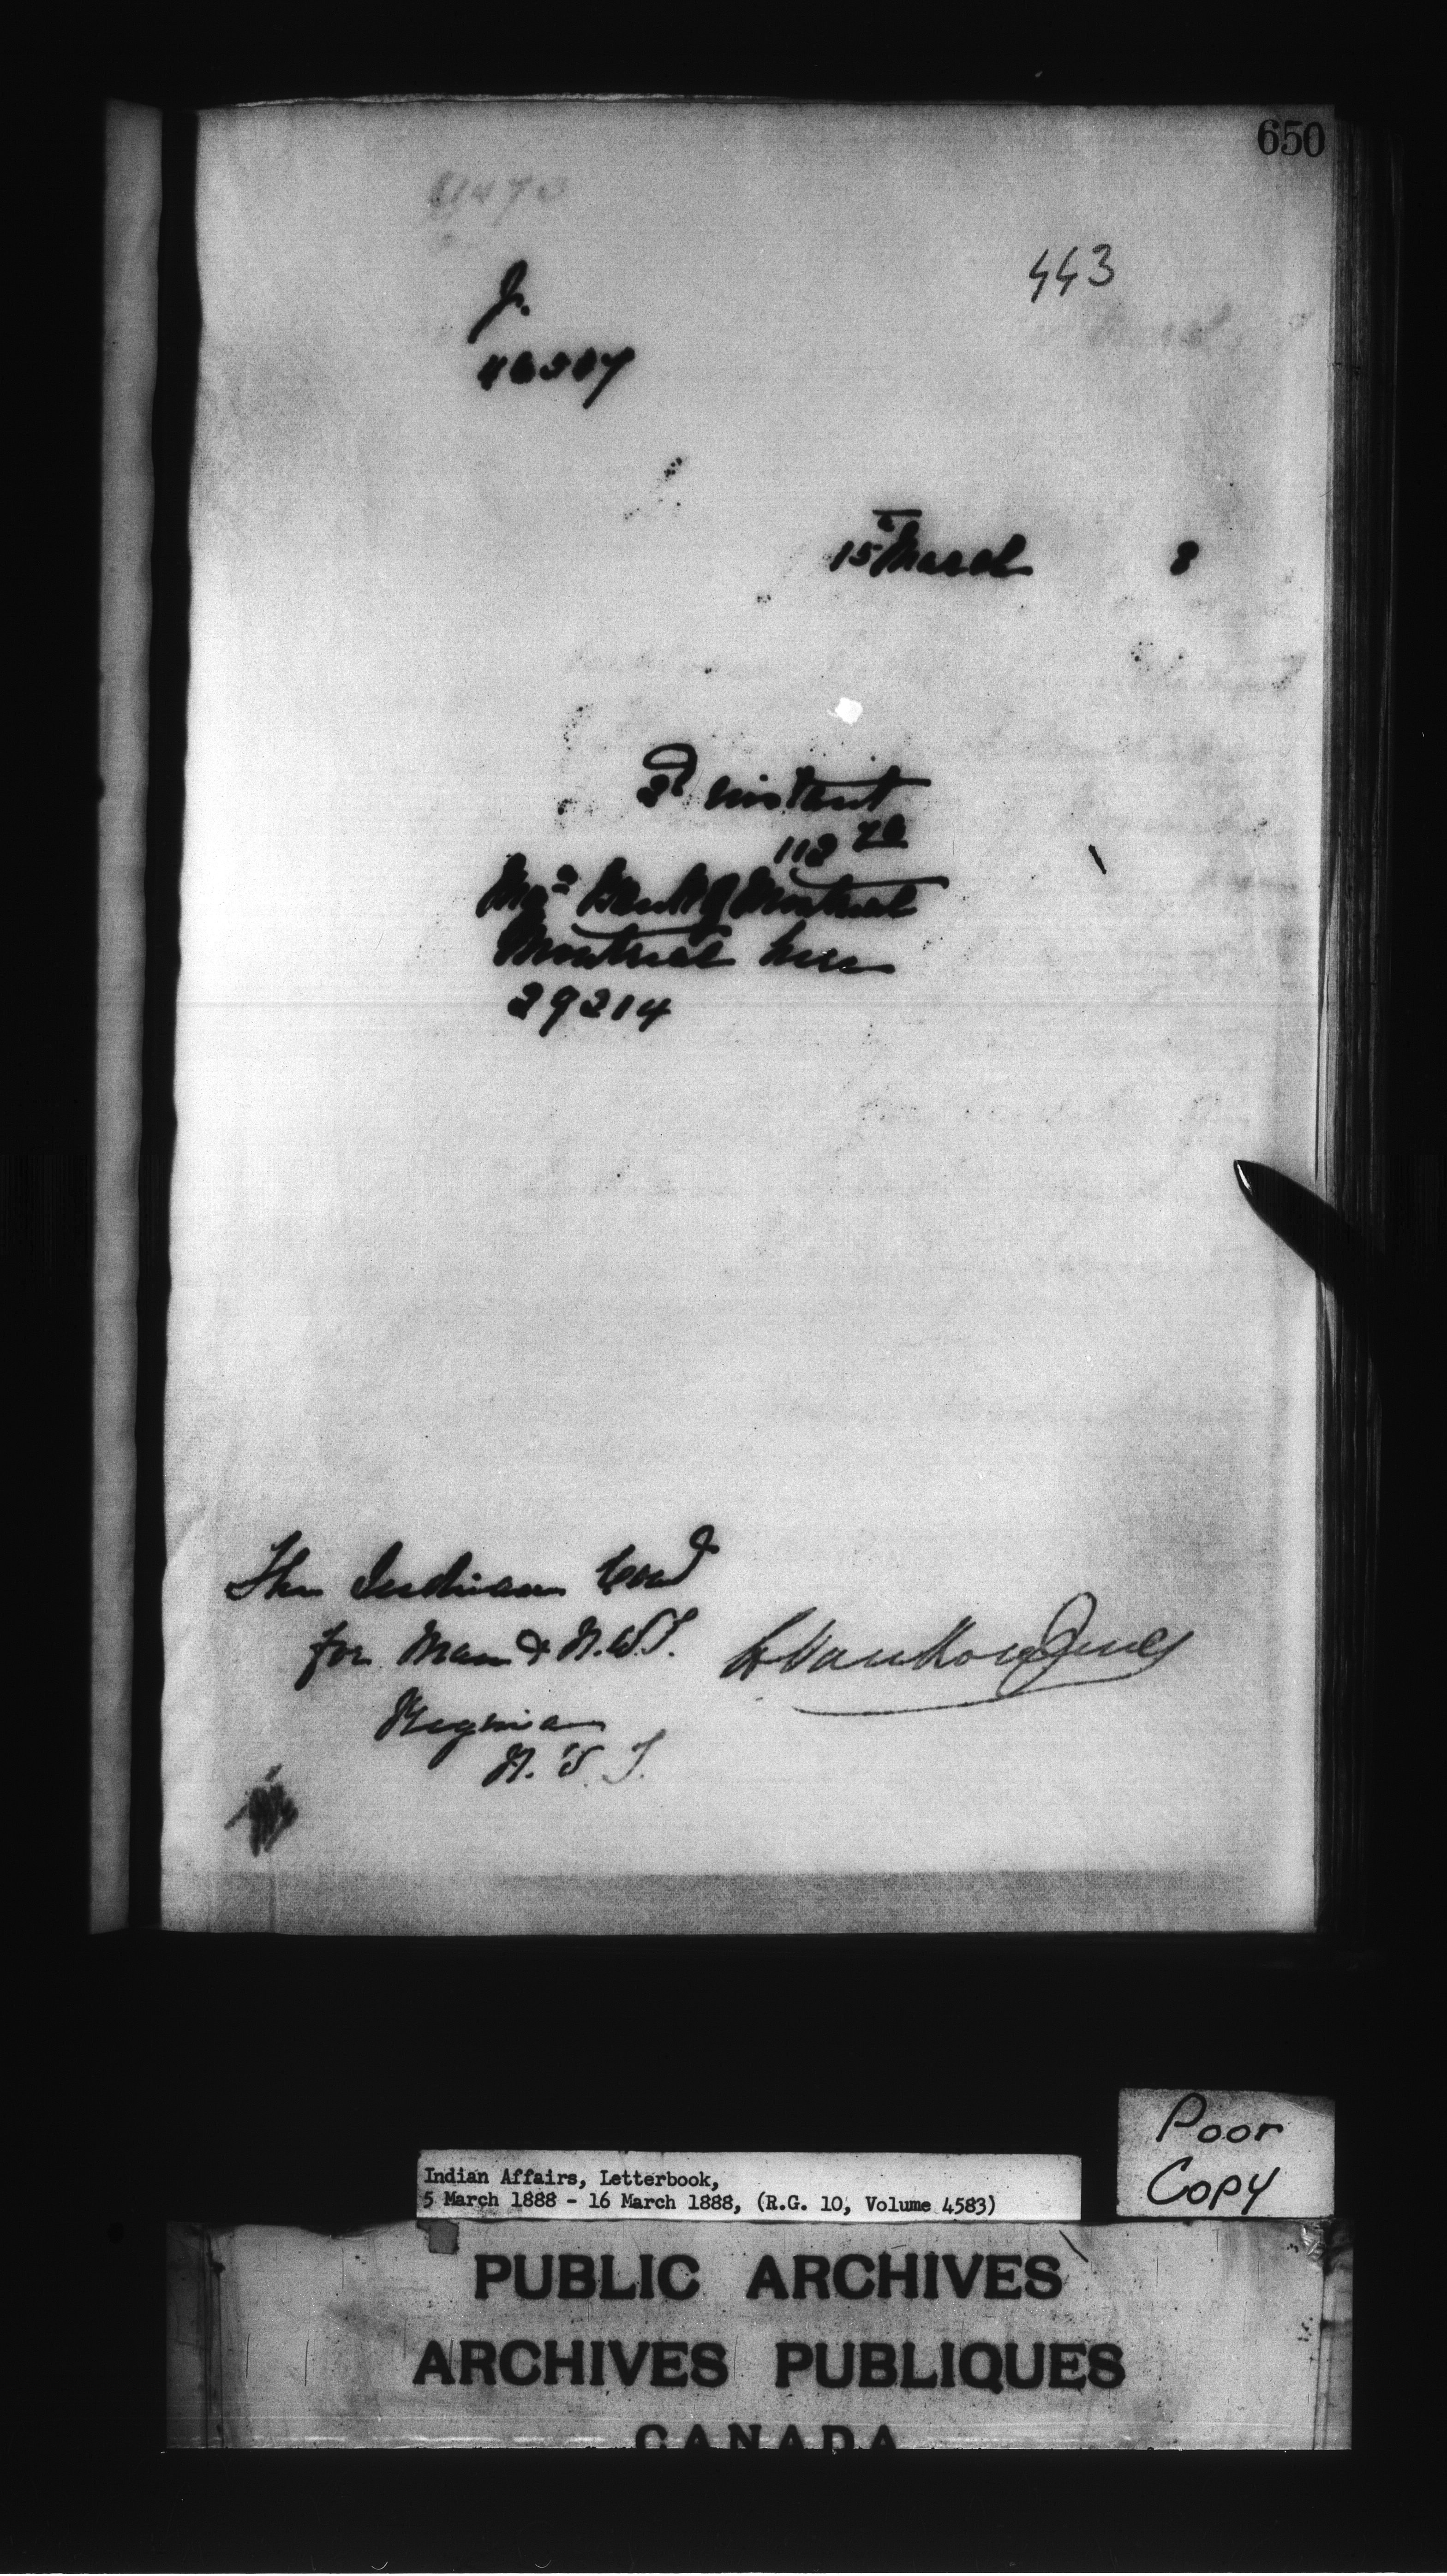 650
443
J.
15th March 8
2d instant
112 70
Mgr Bank of Montreal
Montreal here
29214
The Indian Comd
for Man & N.W.T.
Regina
N.W.T.
L Vankoughnet
Poor
Copy
Indian Affairs, Letterbook,
5 March 1888 - 16 March 1888, (R.G. 10, Volume 4583)
PUBLIC ARCHIVES
ARCHIVES PUBLIQUES
CANADA